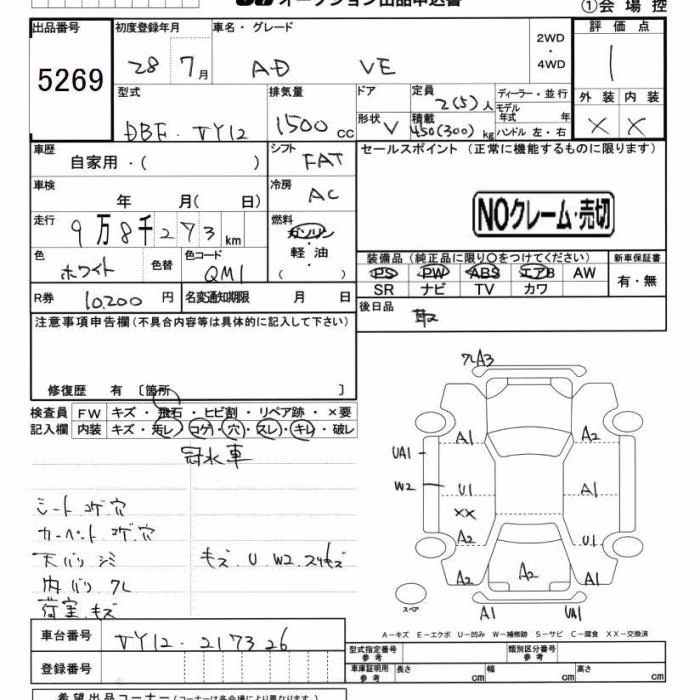 オークション出品申込書
①会場控
出品番号
5269
初度登録年月
28 7月
車名・グレード
AD VE
2WD
・
4WD
評価点
1
型式
DBF・VY12
排気量
1500 cc
ドア
形状 V
定員
2(5)人
積載
450(300)kg
ディーラー・並行
モデル
年式 年
ハンドル 左・右
外装 内装
× ×
車歴
自家用・( )
シフト
FAT
セールスポイント (正常に機能するものに限ります)
車検
年 月( 日)
冷房
AC
NOクレーム・売切
走行
9万8千273km
燃料
ガソリン
軽油
( )
色
ホワイト
色替
色コード
QM1
装備品(純正品に限り○をつけてください)
PS PW ABS エアB AW
SR ナビ TV カワ
新車保証書
有・無
R券 10,200 円
名変通知期限 月 日
後日品
取
注意事項申告欄(不具合内容等は具体的に記入して下さい)
修復歴 有〔箇所 〕
検査員
記入欄
FW キズ・飛石・ヒビ割・リペア跡・×要
内装 キズ・汚レ・コゲ・穴・スレ・キレ・破レ
冠水車
シート コゲ 穴
カーペット コゲ 穴
天バリ シミ
内バリ クレ
荷室 キズ
キズ U W2 スリキズ
クレA3
A1 A2
UA1
W2 U1 A1
××
A2 U1
A2 A2 A1
スペア
A1 UA1
A-キズ E-エクボ U-凹み W-補修跡 S-サビ C-腐食 XX-交換済
車台番号
VY12-217326
登録番号
型式指定番号
参考
類別区分番号
参考
車庫証明用
参考
長さ cm 幅 cm 高さ cm
希望出品コーナー(コーナーは各会場により異なります。)